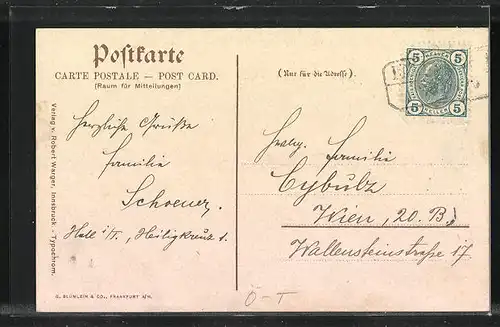 Postkarte
CARTE POSTALE — POST CARD.
(Raum für Mitteilungen)
(Nur für die Adresse)
5 5
5 5
HELLER HELLER
Herzliche Grüße
Familie
Schoener.
Hall i/T., Heiligkreuz 1.
Familie
Cybulz
Wien, 20. B.
Wallensteinstraße 17.
Verlag v. Robert Warger, Innsbruck. - Typochrom.
G. BLÜMLEIN & CO., FRANKFURT A/M.
Ö-T